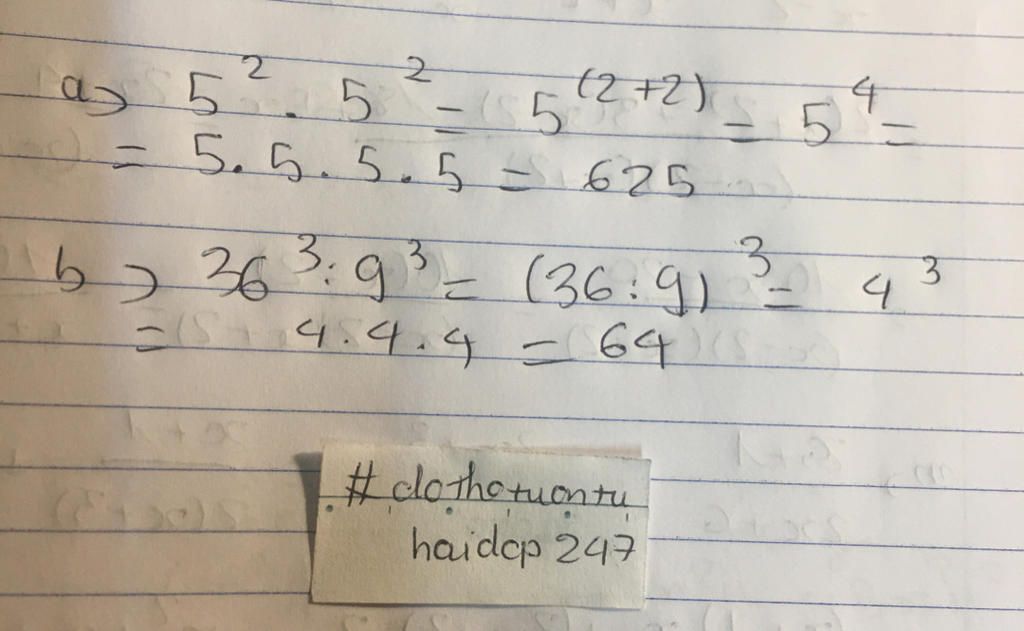 a) 5² . 5² = 5⁽²⁺²⁾ = 5⁴ =
= 5.5.5.5 = 625
b) 36³ : 9³ = (36:9)³ = 4³
= 4.4.4 = 64
# clothotuontu
haidcp 247